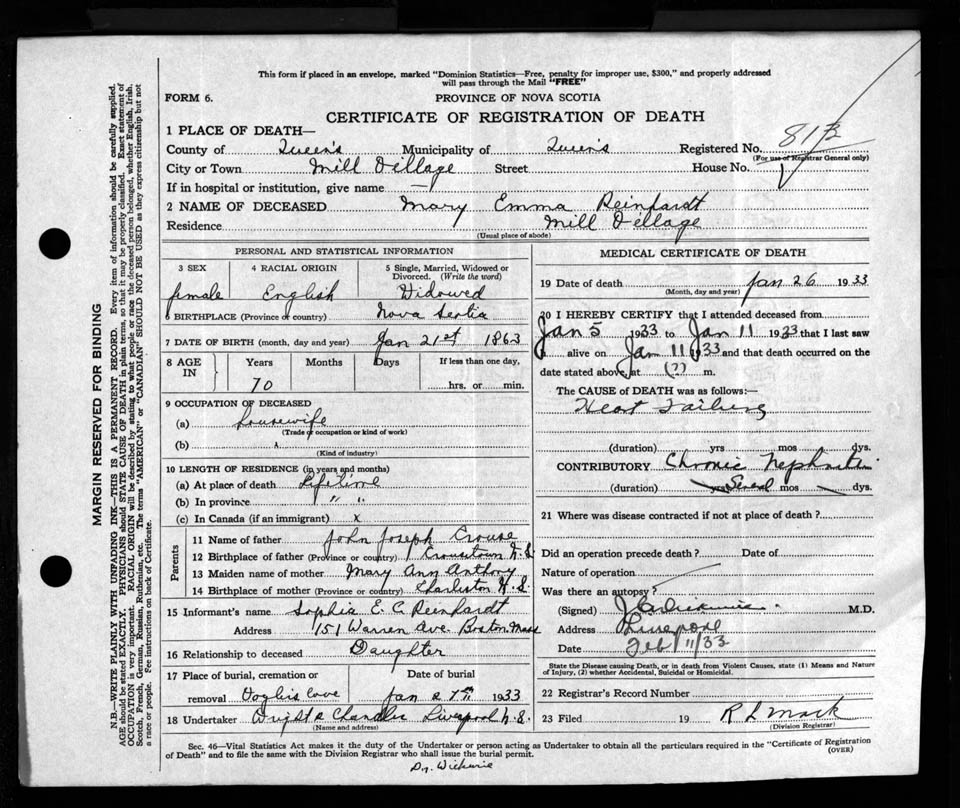 This form if placed in an envelope, marked "Dominion Statistics—Free, penalty for improper use, $300," and properly addressed
will pass through the Mail "FREE"
FORM 6.
PROVINCE OF NOVA SCOTIA
CERTIFICATE OF REGISTRATION OF DEATH
1 PLACE OF DEATH—
County of Queen's Municipality of Queen's Registered No. 813
(For use of Registrar General only)
City or Town Mill Village Street House No.
If in hospital or institution, give name —
2 NAME OF DECEASED Mary Emma Reinhardt
Residence Mill Village
(Usual place of abode)
PERSONAL AND STATISTICAL INFORMATION
3 SEX 4 RACIAL ORIGIN 5 Single, Married, Widowed or
Divorced. (Write the word)
female English Widowed
6 BIRTHPLACE (Province or country) Nova Scotia
7 DATE OF BIRTH (month, day and year) Jan 21st 1863
8 AGE IN Years Months Days If less than one day,
70 hrs. or min.
9 OCCUPATION OF DECEASED
(a) housewife
(Trade or occupation or kind of work)
(b) x
(Kind of industry)
10 LENGTH OF RESIDENCE (in years and months)
(a) At place of death Lifetime
(b) In province " "
(c) In Canada (if an immigrant) x
Parents
11 Name of father John Joseph Crouse
12 Birthplace of father (Province or country) Crousetown N.S.
13 Maiden name of mother Mary Ann Anthony
14 Birthplace of mother (Province or country) Charleston N.S.
15 Informant's name Sophia E. C. Reinhardt
Address 151 Warren Ave. Boston Mass
16 Relationship to deceased Daughter
17 Place of burial, cremation or Date of burial
removal Voglers Cove Jan 27th 1933
18 Undertaker Wright & Chandler Liverpool N.S.
(Name and address)
MEDICAL CERTIFICATE OF DEATH
19 Date of death Jan 26 1933
(Month, day and year)
20 I HEREBY CERTIFY that I attended deceased from
Jan 5 1933 to Jan 11 1933 that I last saw
alive on Jan 11 1933 and that death occurred on the
date stated above, at (?) m.
The CAUSE OF DEATH was as follows:—
Heart Failure
(duration) yrs mos dys.
CONTRIBUTORY Chronic Nephritis
(duration) yrs Several mos dys.
21 Where was disease contracted if not at place of death?
Did an operation precede death? Date of
Nature of operation
Was there an autopsy?
(Signed) M.D.
Address Liverpool
Date Feb 11/33
State the Disease causing Death, or in death from Violent Causes, state (1) Means and Nature
of Injury, (2) whether Accidental, Suicidal or Homicidal.
22 Registrar's Record Number
23 Filed 19 R L Mack
(Division Registrar)
Sec. 46—Vital Statistics Act makes it the duty of the Undertaker or person acting as Undertaker to obtain all the particulars required in the "Certificate of Registration
of Death" and to file the same with the Division Registrar who shall issue the burial permit.
(OVER)
MARGIN RESERVED FOR BINDING
N.B.—WRITE PLAINLY WITH UNFADING INK—THIS IS A PERMANENT RECORD. Every item of information should be carefully supplied.
AGE should be stated EXACTLY. PHYSICIANS should STATE CAUSE OF DEATH in plain terms, so that it may be properly classified. Exact statement of
OCCUPATION is very important. RACIAL ORIGIN will be described by stating to what people or race the deceased person belonged, whether English, Irish,
Scotch, French, German, Russian, Ruthenian, etc. The terms "AMERICAN" or "CANADIAN" SHOULD NOT BE USED as they express citizenship but not
a race or people. Fee instructions on back of Certificate.